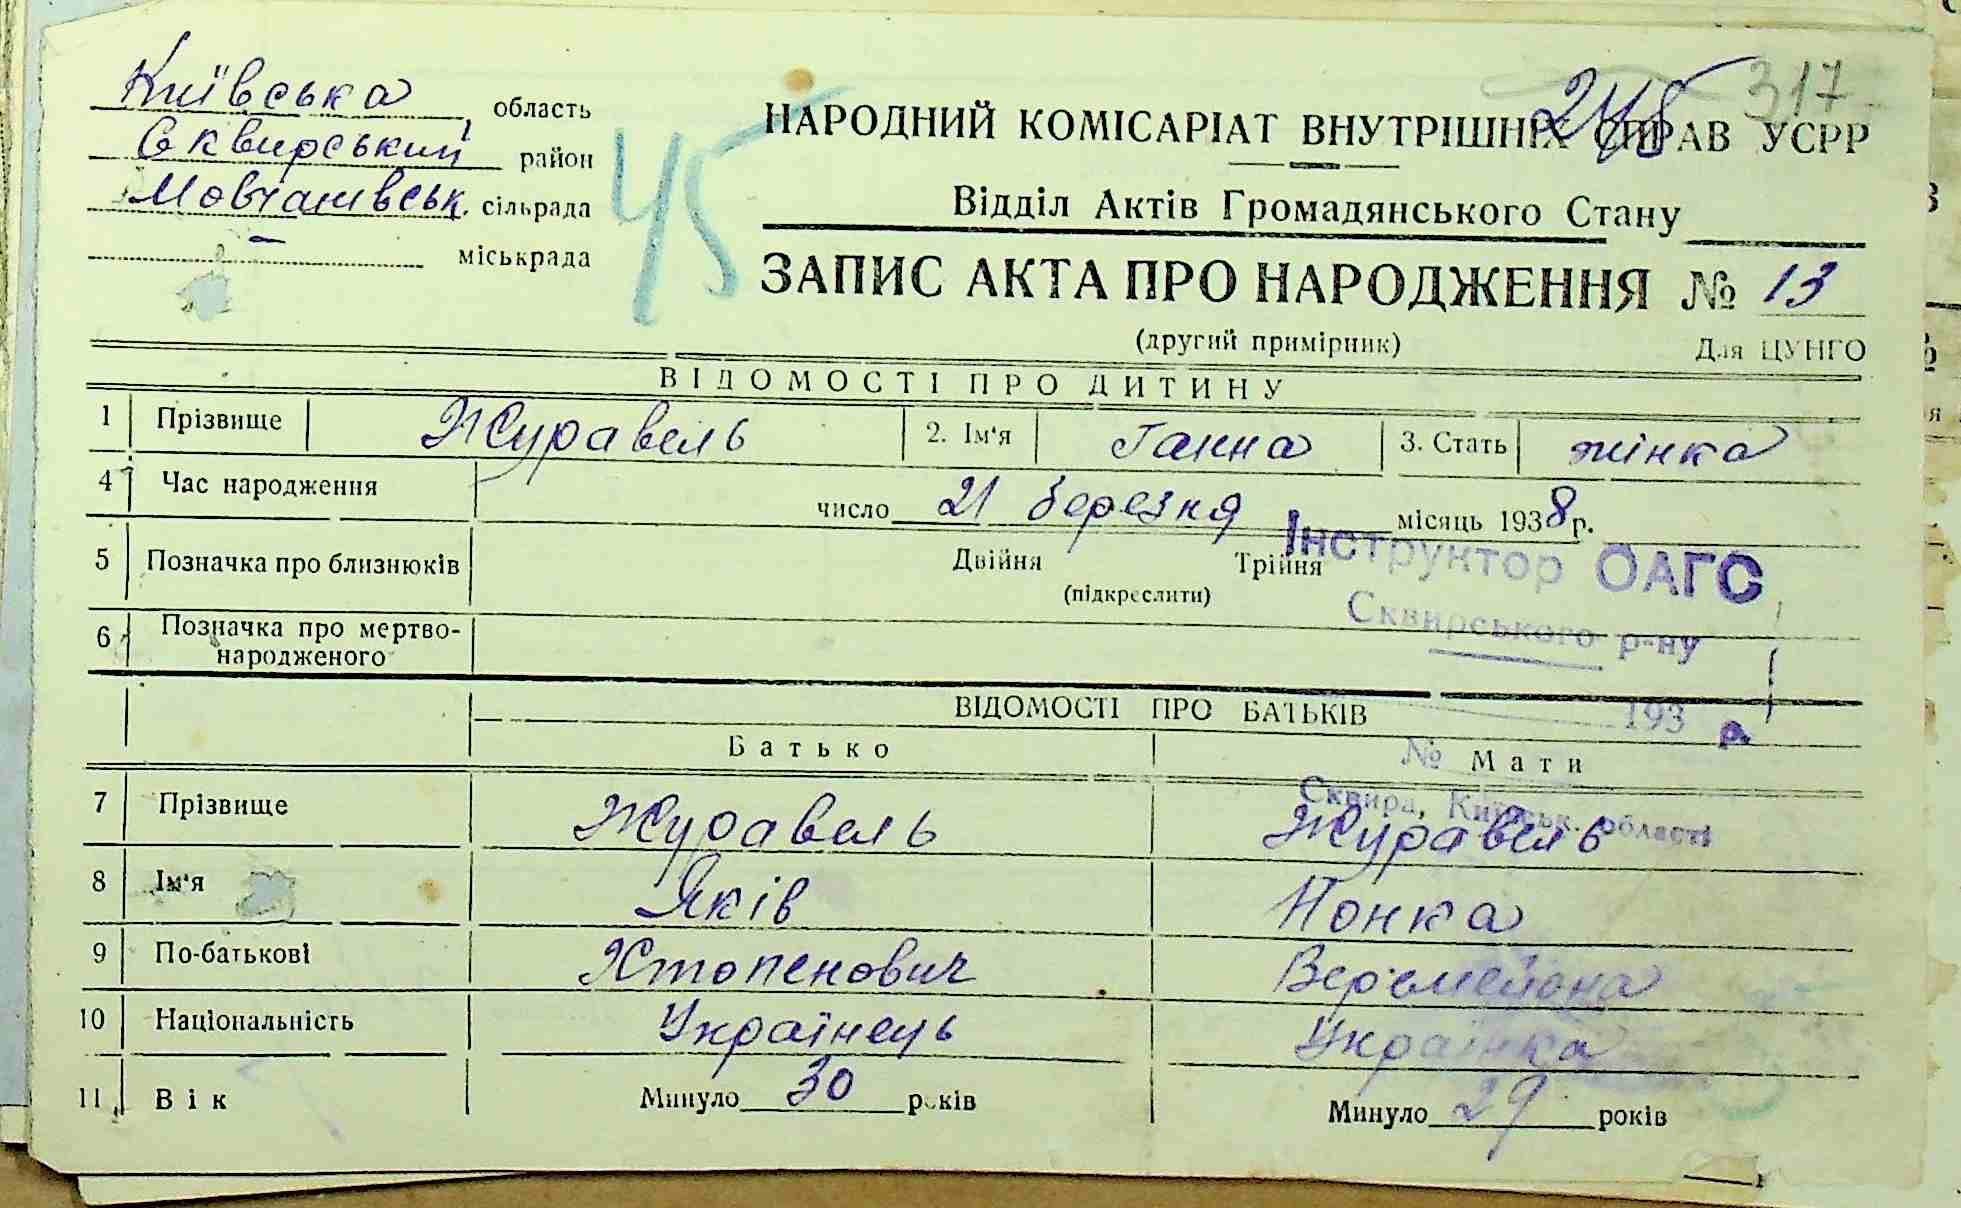 Київська область
Сквирський район
Мовчанівськ. сільрада
— міськрада
45
248
317
НАРОДНИЙ КОМІСАРІАТ ВНУТРІШНІХ СПРАВ УСРР
Відділ Актів Громадянського Стану
ЗАПИС АКТА ПРО НАРОДЖЕННЯ № 13
(другий примірник) Для ЦУНГО
ВІДОМОСТІ ПРО ДИТИНУ
1 Прізвище Журавель 2. Ім'я Ганна 3. Стать жінка
4 Час народження число 21 березня місяць 1938 р.
5 Позначка про близнюків Двійня Трійня
(підкреслити)
6 Позначка про мертво-
народженого
Інструктор ОАГС
Сквирського р-ну
193 р.
№
Сквира, Київськ. області
ВІДОМОСТІ ПРО БАТЬКІВ
Батько Мати
7 Прізвище Журавель Журавель
8 Ім'я Яків Нонка
9 По-батькові Хтопенович
10 Національність Українець Українка
11 Вік Минуло 30 років Минуло 29 років